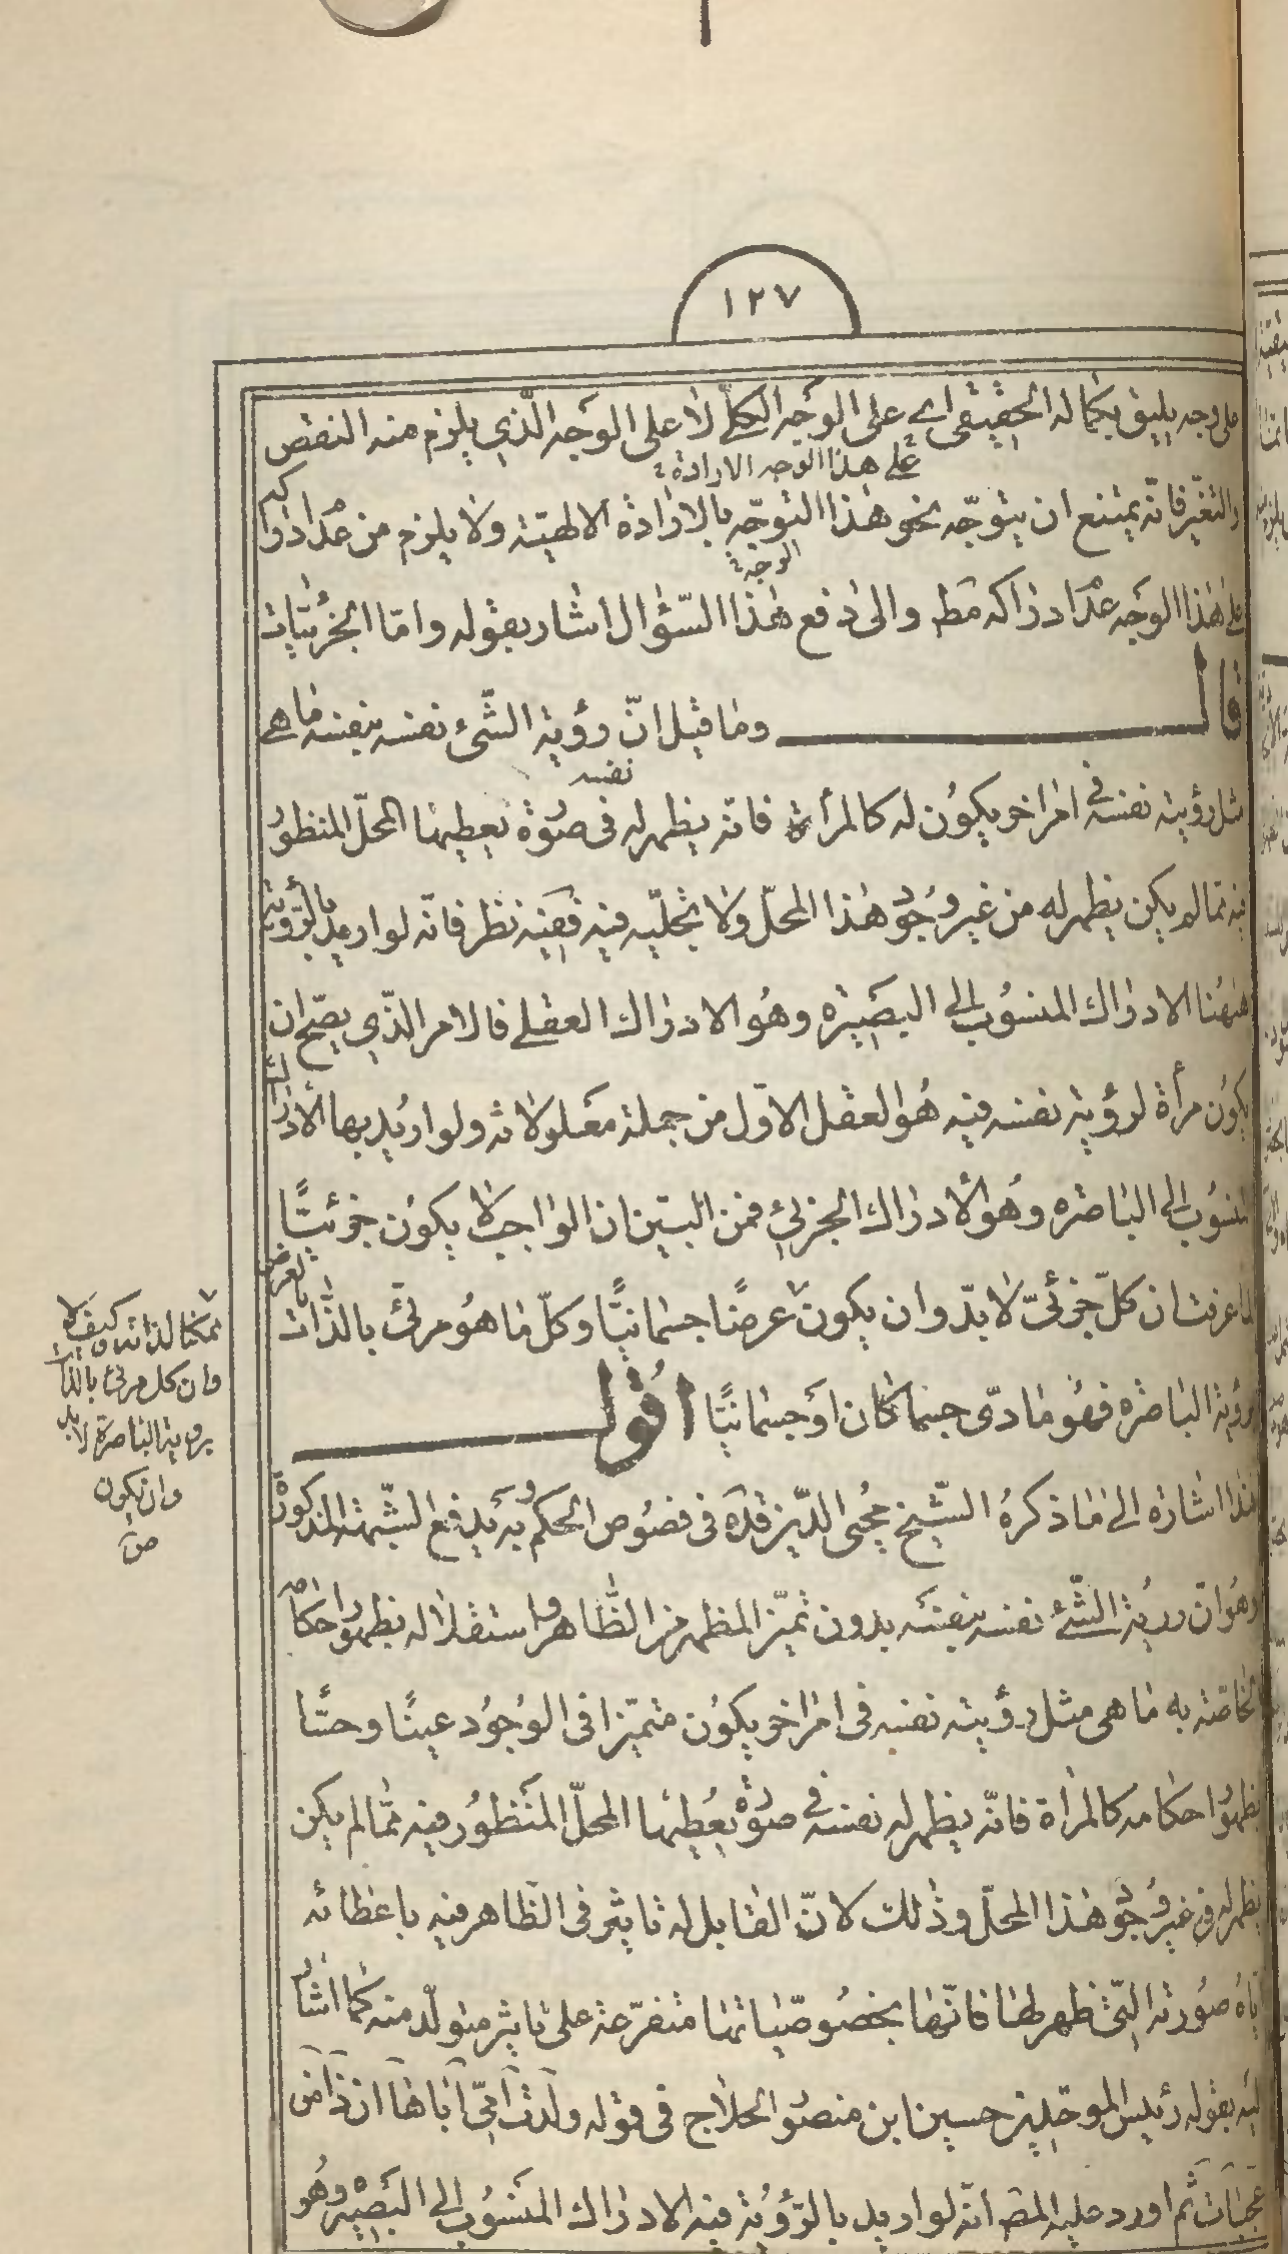 ١٢٧
على وجه يليق بكماله الحقيقى اى على الوجه الكلى لا على الوجه الذى يلزم منه النقص
على هذا الوجه الارادة
والتغير فانه يمتنع ان يتوجه نحو هذا التوجه بالارادة الالهية ولا يلزم من عدم ادراكه
الوجه
على هذا الوجه عدم ادراكه مط والى دفع هذا السؤال اشار بقوله واما الجزئيات
قال وما قيل ان رؤية الشىء نفسه بنفسه ما هى
نفسه
مثل رؤيته نفسه فى امر اخر يكون له كالمرأة فانه يظهر له فى صورة يعطيها المحل المنظور
فيه مما لم يكن يظهر له من غير وجود هذا المحل ولا تجليه فيه ففيه نظر فانه لو اريد بالرؤية
ههنا الادراك المنسوب الى البصيرة وهو الادراك العقلى فالامر الذى يصح ان
يكون مرأة لرؤية نفسه فيه هو العقل الاول من جملة معلولاته ولو اريد بها الادراك
المنسوب الى الباصره وهو الادراك الجزئى فمن البين ان الواجب لا يكون جزئيا
لما عرفت ان كل جزئى لا بد وان يكون عرضا جسمانيا وكل ما هو مرئى بالذات بالعرض
برؤية الباصره فهو مادى جسما كان او جسمانيا اقول
هذا اشارة الى ما ذكره الشيخ محيى الدين قده فى فصوص الحكم وبه يدفع الشبهة المذكورة
وهو ان رؤية الشىء نفسه بنفسه بدون تميز المظهر من الظاهر واستقلاله بظهور احكامه
الخاصة به ما هى مثل رؤيته نفسه فى امر اخر يكون متميزا فى الوجود عينا وحسا
بظهور احكامه كالمراة فانه يظهر له نفسه فى صورة يعطيها المحل المنظور فيه مما لم يكن
يظهر له من غير وجود هذا المحل وذلك لان القابل له تاثير فى الظاهر فيه باعطائه
اياه صورته التى ظهر لها فانها بخصوصياتها متفرعة على تاثير متولد منه كما اشار
اليه بقوله رئيس الموحدين حسين ابن منصور الحلاج فى قوله ولدت امى اباها ان ذا من
عجبات ثم اورد عليه المصـ انه لو اريد بالرؤية فيه الادراك المنسوب الى البصيره وهو
ممكنا لذاته كيف لا
وان كل مرئى بالذات
برؤية الباصرة لا بد
وان يكون
صح